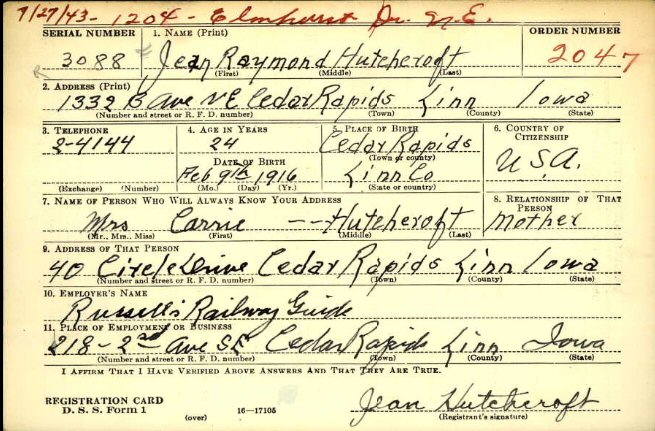 9/27/43 - 1204 - Elmhurst Dr. N.E.
SERIAL NUMBER 1. NAME (Print) ORDER NUMBER
3088 Jean Raymond Hutchcroft 2047
(First) (Middle) (Last)
2. ADDRESS (Print)
1332 B Ave NE Cedar Rapids Linn Iowa
(Number and street or R. F. D. number) (Town) (County) (State)
3. TELEPHONE 4. AGE IN YEARS 5. PLACE OF BIRTH 6. COUNTRY OF CITIZENSHIP
2-4144 24 Cedar Rapids
(Town or county)
DATE OF BIRTH
Feb 9th 1916 Linn Co U.S.A.
(Exchange) (Number) (Mo.) (Day) (Yr.) (State or country)
7. NAME OF PERSON WHO WILL ALWAYS KNOW YOUR ADDRESS 8. RELATIONSHIP OF THAT PERSON
Mrs Carrie -- Hutchcroft Mother
(Mr., Mrs., Miss) (First) (Middle) (Last)
9. ADDRESS OF THAT PERSON
40 Circle Drive Cedar Rapids Linn Iowa
(Number and street or R. F. D. number) (Town) (County) (State)
10. EMPLOYER'S NAME
Russell's Railway Guide
11. PLACE OF EMPLOYMENT OR BUSINESS
218-2nd Ave SE Cedar Rapids Linn Iowa
(Number and street or R. F. D. number) (Town) (County) (State)
I AFFIRM THAT I HAVE VERIFIED ABOVE ANSWERS AND THAT THEY ARE TRUE.
REGISTRATION CARD
D. S. S. Form 1 (over) 16-17105 Jean Hutchcroft
(Registrant's signature)